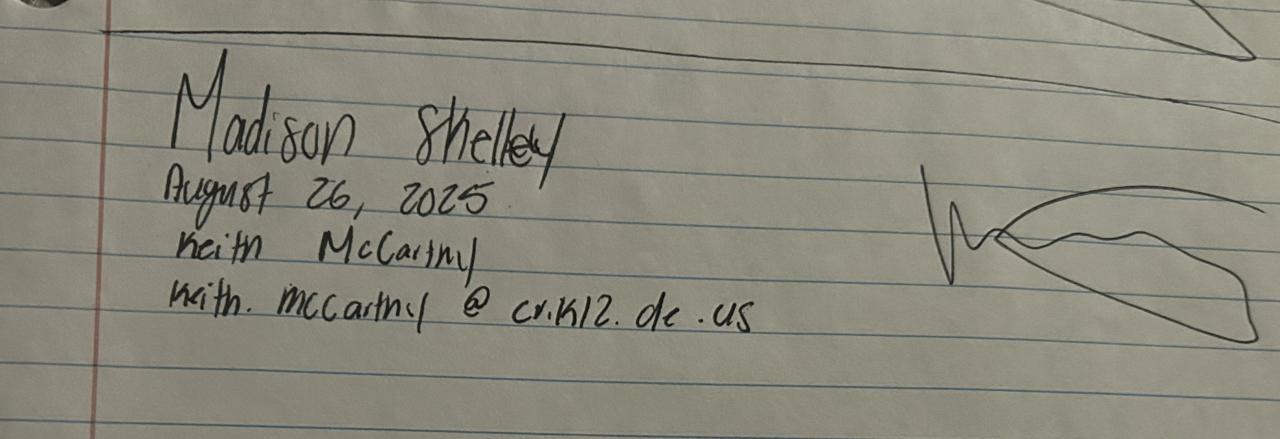 Madison Shelley
August 26, 2025
Keith McCarthy
Keith.mccarthy@cr.k12.de.us